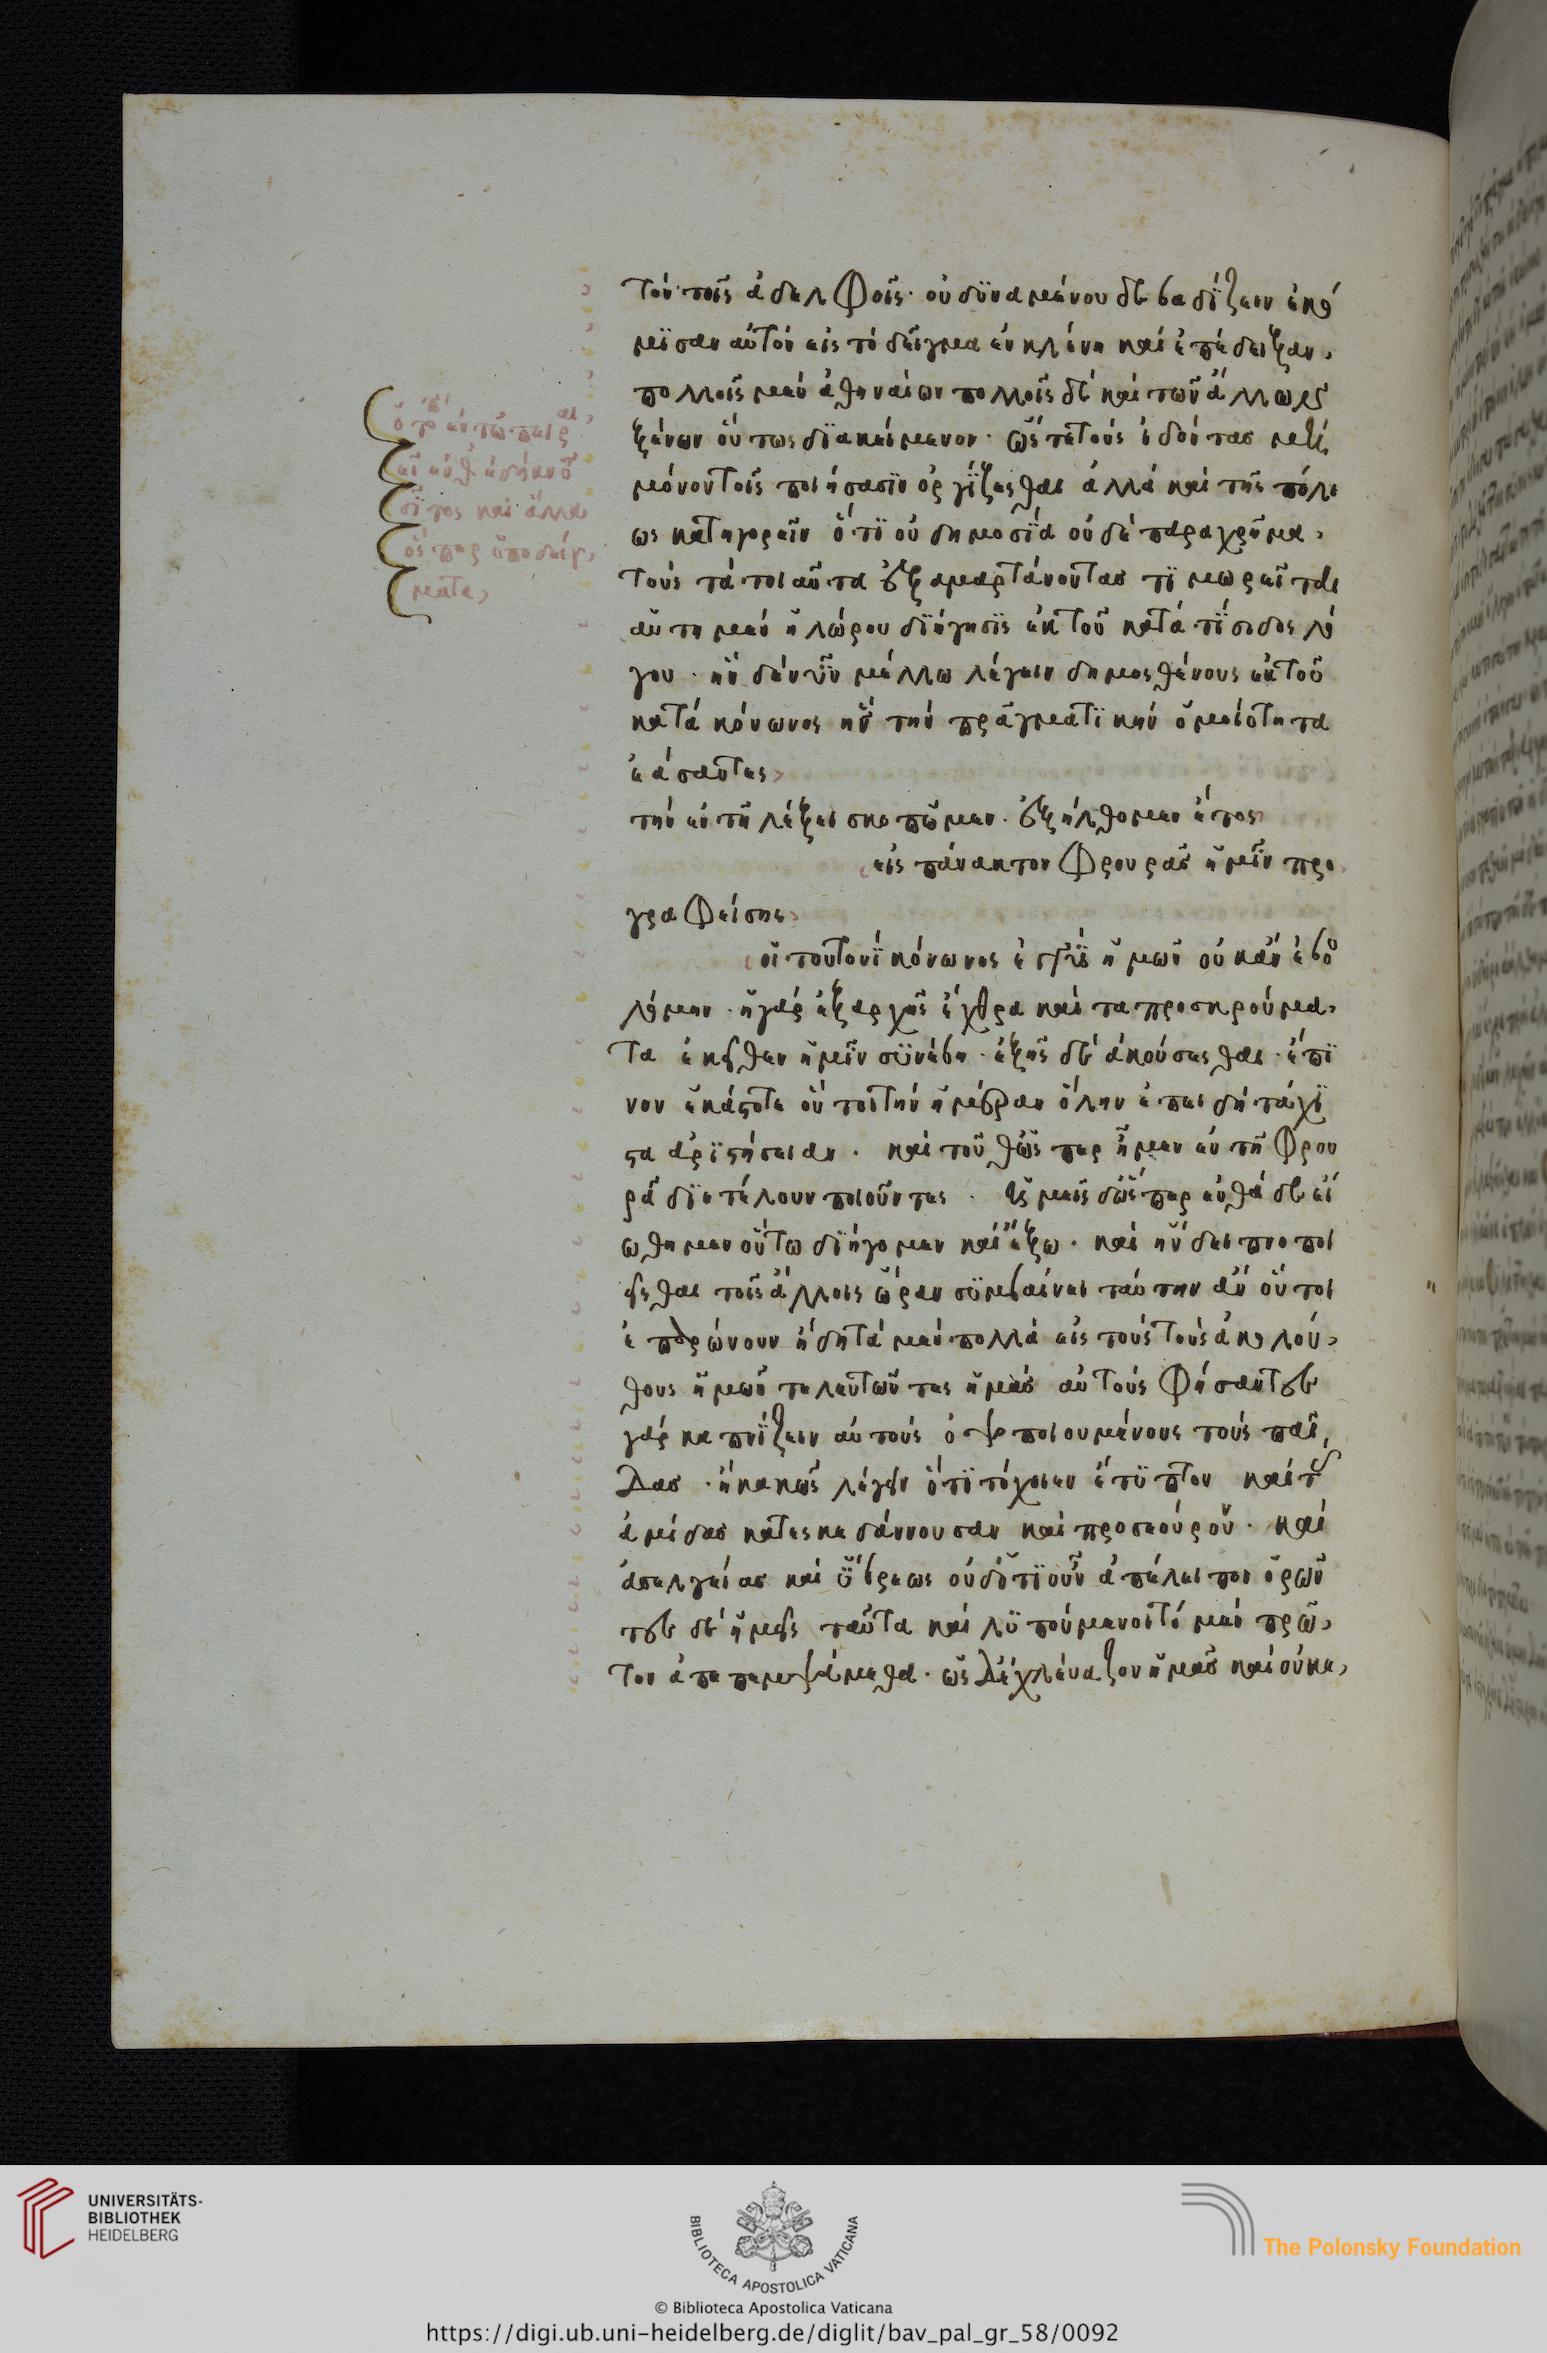 τον τοῖς ἀδελφοῖς· οὐ δυναμένου δὲ βαδίζειν ἐκό
μισαν αὐτὸν εἰς τὸ δεῖγμα ἐν κλίνη καὶ ἐπέδειξαν,
πολλοῖς μὲν ἀθηναίων πολλοῖς δὲ καὶ τῶν ἄλλων
ξένων οὕτως διακείμενον· ὥστε τοὺς ἰδόντας μὴ
μόνον τοῖς ποιήσασιν ὀργίζεσθαι ἀλλὰ καὶ τῆς πόλε
ως κατηγορεῖν ὅτι οὐ δημοσία οὐδὲ παραχρῆμα,
τοὺς τὰ τοιαῦτα ἐξαμαρτάνοντας τιμωρεῖται
αὕτη μὲν ἡ λώρου διήγησις ἐκ τοῦ κατὰ τίσιδος λό
γου· ἣν δὲ νῦν μέλλω λέγειν δημοσθένους ἐκ τοῦ
κατὰ κόνωνος ἣν τὴν πραγματικὴν ὁμοιότητα
ἐάσαντες,
τὴν ἐν τῆ λέξει σκοπῶμεν· ἐξήλθομεν ἔτος
εἰς πάνακτον φρουρᾶς ἡμῖν προ
γραφείσης,
οἱ τουτονὶ κόνωνος ἐγγὺς ἡμῶν οὐκ ἂν ἐβου
λόμην· ἡ γὰρ ἐξαρχῆς ἔχθρα καὶ τὰ προσκρούμα,
τα ἐκεῖθεν ἡμῖν συνέβη· ἐξ ἧς δὲ ἀκούσεσθαι· ἔπι
νον ἑκάστοτε οὗτοι τὴν ἡμέραν ὅλην ἐπειδὴ τάχι
στα ἀριστήσειαν· καὶ τοῦθ᾽ ὥσπερ ἦμεν ἐν τῆ φρου
ρᾶ διετέλουν ποιοῦντες· ἡμεῖς δ᾽ ὥσπερ ἐνθάδε εἰ
ώθημεν οὕτω διήγομεν καὶ ἔξω· καὶ ἣν δειπνοποι
εῖσθαι τοῖς ἄλλοις ὥραν συμβαίνει ταύτην ἂν οὗτοι
ἐπαρώνουν ἤδη τὰ μὲν πολλὰ εἰς τοὺς τοὺς ἀκολού,
θους ἡμῶν τελευτῶντες ἡμᾶς αὐτοὺς φήσαντες
γὰρ καπνίζειν αὐτοὺς ὀψοποιουμένους τοὺς παῖ,
δας· ἢ κακῶς λέγειν ὅτι τύχοιεν ἔτυπτον καὶ τὰς
ἀμίδας κατεσκεδάννουσαν καὶ προσεούρουν· καὶ
ἀσελγείας καὶ ὕβρεως οὐδ᾽ ὁτιοῦν ἀπέλειπον ὁρῶν
τες δὲ ἡμεῖς ταῦτα καὶ λυπούμενοι τὸ μὲν πρῶ,
τον ἀπεπεμψάμεθα· ὡς δὲ ἐχλεύαζον ἡμᾶς καὶ οὐκ ἐ,
σῖτος καὶ ἄλλα
ὥσπερ ὑποδείγ,
ματα,
UNIVERSITÄTS-
BIBLIOTHEK
HEIDELBERG
BIBLIOTECA APOSTOLICA VATICANA
© Biblioteca Apostolica Vaticana
The Polonsky Foundation
https://digi.ub.uni-heidelberg.de/diglit/bav_pal_gr_58/0092